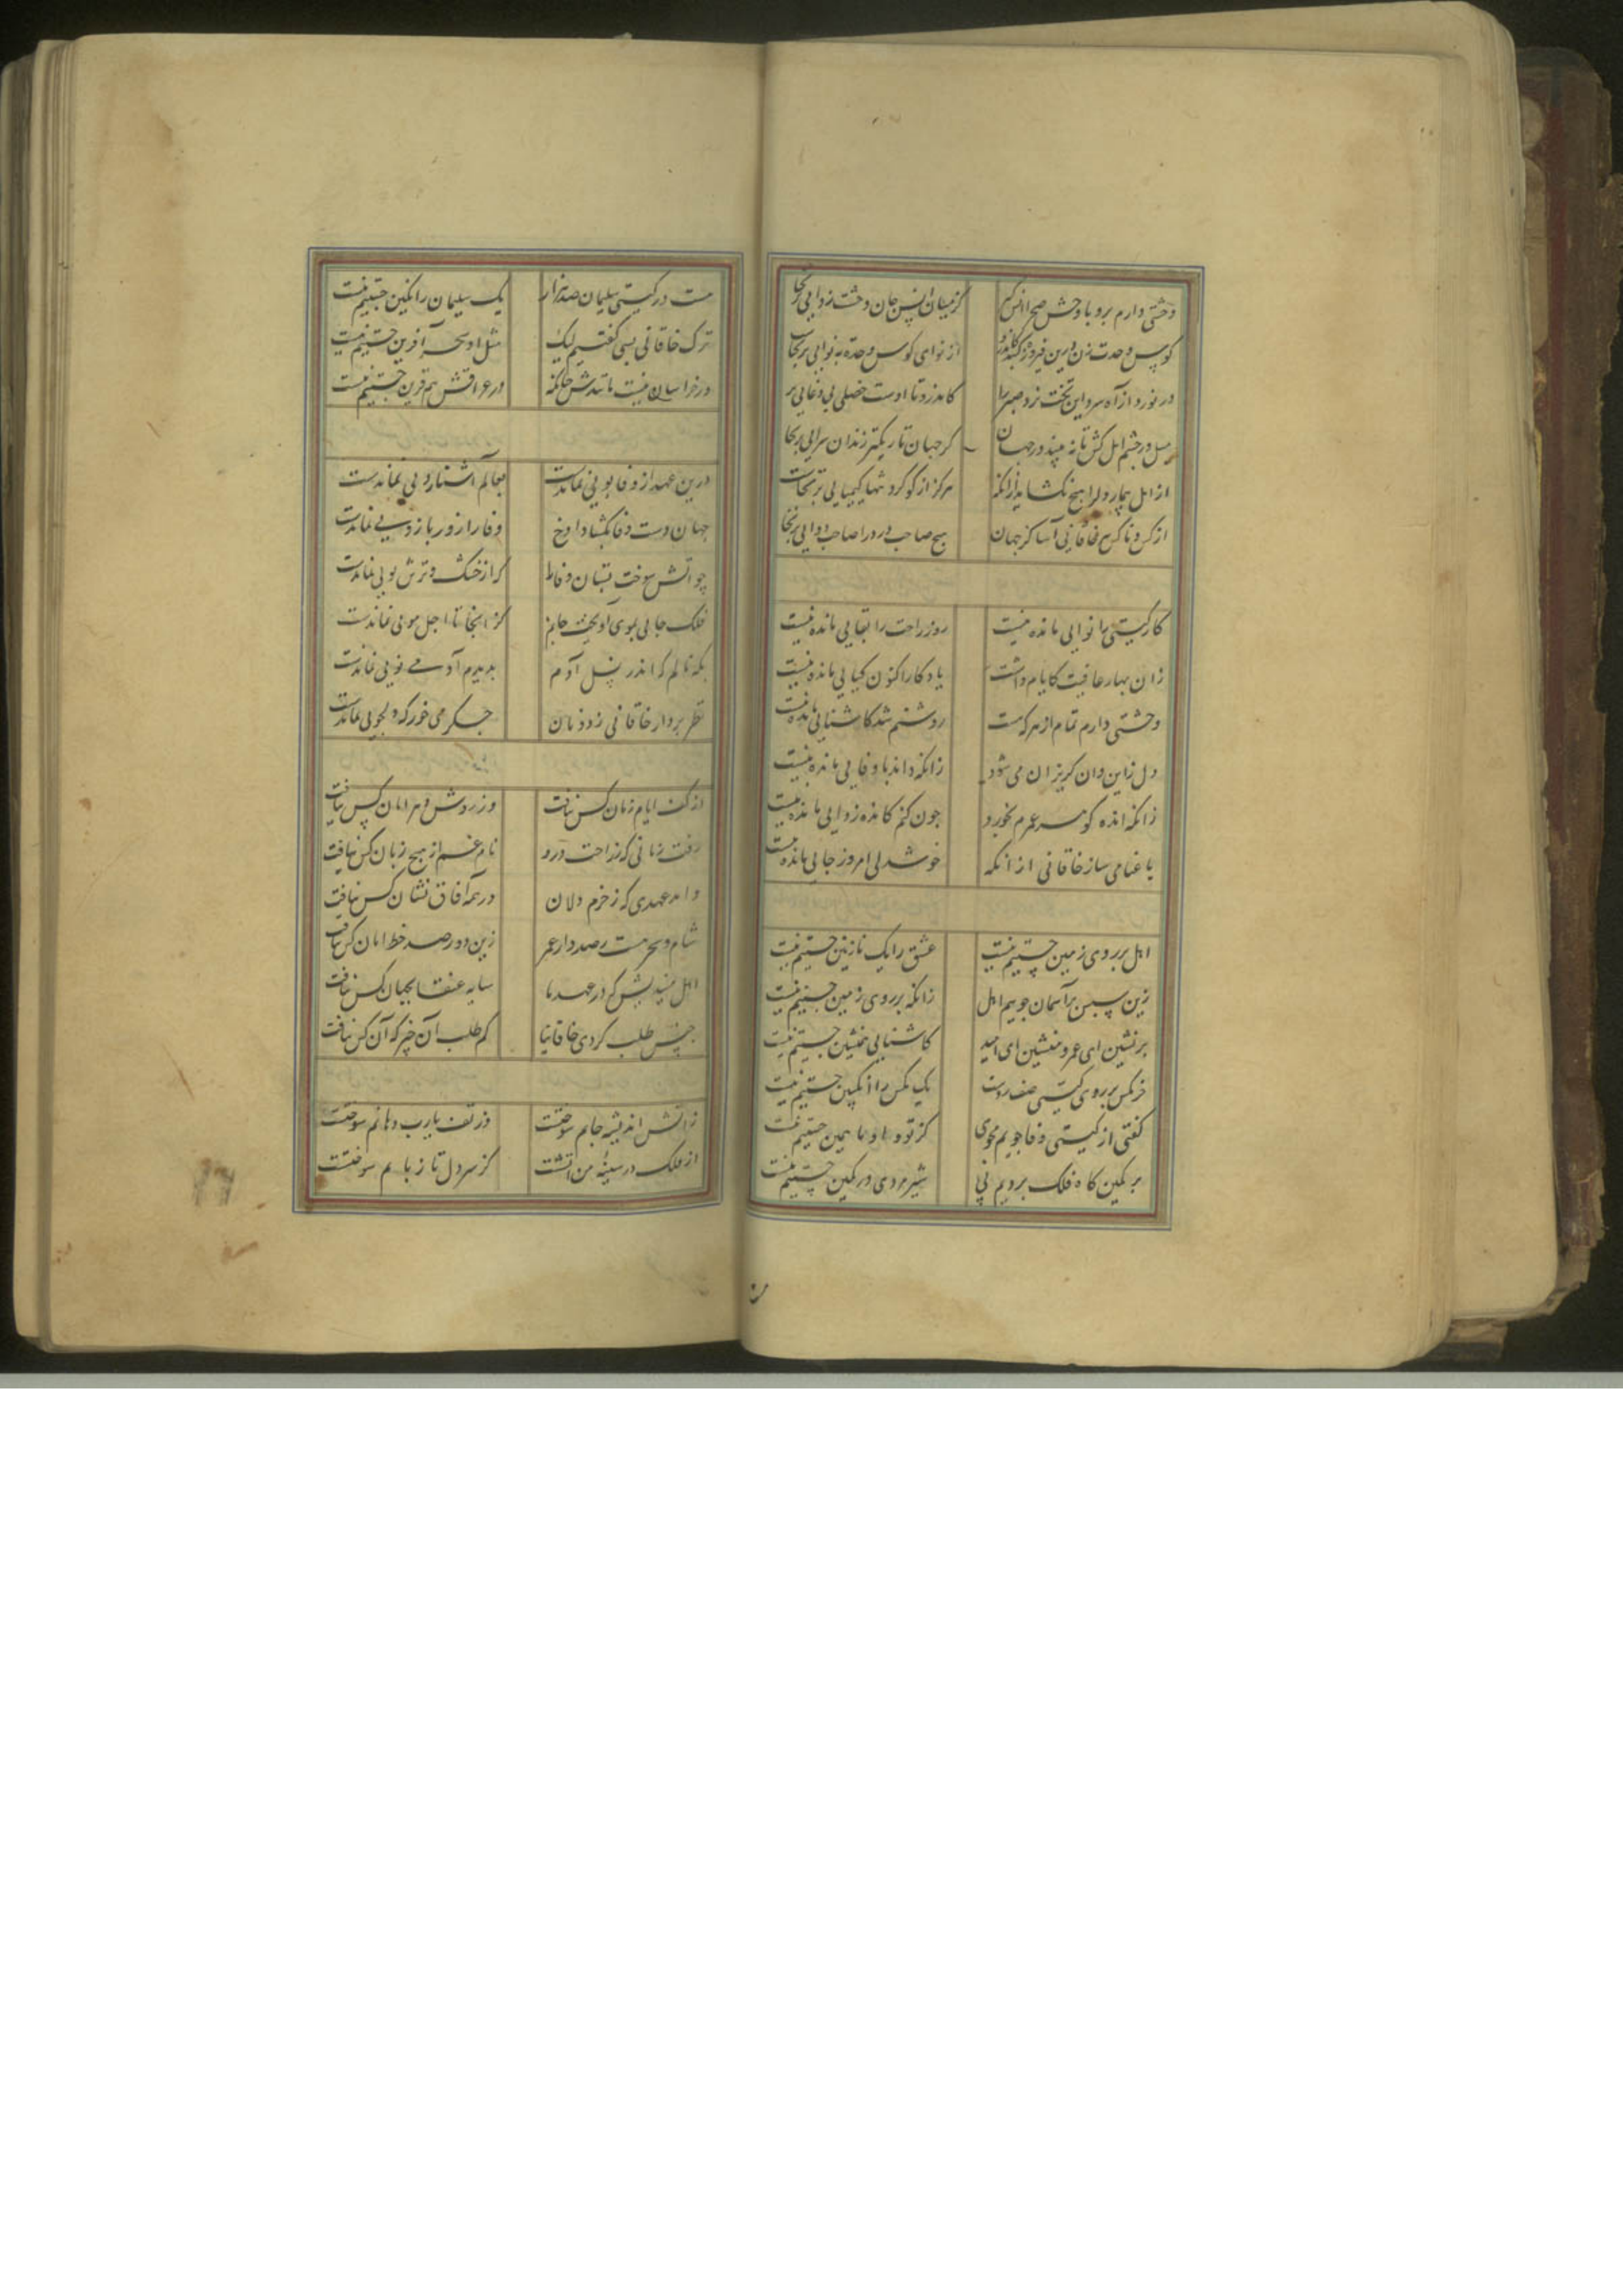 وحشتی دارم برو با وحش صحرا انس گیر
کز میان انس و جان وحشت زدایی برنخاست
کوس وحدت زن درین فیروزه گنبد
از نوای کوس وحدت به نوایی برنخاست
در نورد از آه سرد این تخت نرد سبز را
کاندرو تا اوست خصلی بی دغایی بر
میل در چشم امل کش تا نبیند در جهان
کز جهان تاریکتر زندان سرایی برنخاست
از امل بیمار دل را هیچ نگشاید از انکه
هرگز از گوگرد تنها کیمیایی برنخاست
از کس و ناکس ببر خاقانی آسا کز جهان
هیچ صاحب درد را صاحب دوایی برنخاست
کار گیتی را نوایی مانده نیست
روز راحت را بقایی مانده نیست
زان بهار عافیت کایام داشت
یادگار اکنون گیایی مانده نیست
وحشتی دارم تمام از هر که هست
روشنم شد کاشنایی مانده نیست
دل ازین و آن گریزان می شود
زانکه داند با وفایی مانده نیست
زانکه انده کوسر عمرم بخورد
چون کنم کانده زدایی مانده نیست
با غنا می ساز خاقانی از انکه
خوشدلی امروز جایی مانده نیست
اهل بر روی زمین جستیم نیست
عشق را یک نازنین جستیم نیست
زین سپس بر آسمان جوییم اهل
زانکه بر روی زمین جستیم نیست
برنشین ای عمر و منشین ای امید
کاشنایی همنشین جستیم نیست
خرمگس بر روی گیتی صف زدست
یک مگس را انگبین جستیم نیست
گفتی از گیتی وفا جویم مجوی
کز تو و او ما همین جستیم نیست
بر کمین گاه فلک بردیم پی
شیر مردی در کمین جستیم نیست
هست در گیتی سلیمان صد هزار
یک سلیمان را نگین جستیم نیست
ترک خاقانی بسی گفتیم لیک
مثل او سحر آفرین جستیم نیست
در خراسان نیست مانندش چنانکه
در عراقش هم قرین جستیم نیست
درین عهد از وفا بویی نماندست
بعالم آشنارویی نماندست
جهان دست وفا بگشاد اوخ
وفا را زور بازویی نماندست
چو آتش سوخت بستان وفا را
که از خشک و ترش بویی نماندست
فلک جایی بموی آویخت جانم
کز اینجا تا اجل مویی نماندست
بکه نالم که اندر نسل آدم
بدیدم آدمی خویی نماندست
نظر بردار خاقانی ز دونان
جگر می خور که دلجویی نماندست
از کف ایام زمان کس نیافت
وز روش دهر امان کس نیافت
رفت زمانی که ز راحت درو
نام غم از هیچ زبان کس نیافت
وامد عهدی که ز خرم دلان
در همه آفاق نشان کس نیافت
شام و سحر هست رصددار عمر
زین دو رصد خط امان کس نیافت
اهل میندیش که در عهد ما
سایه عنقا بجهان کس نیافت
جنس طلب کردی خاقانیا
کم طلب آن چیز که آن کس نیافت
ز آتش اندیشه جانم سوختست
وز تف یارب دهانم سوختست
از فلک در سینه من آتشست
کز سر دل تا زبانم سوختست